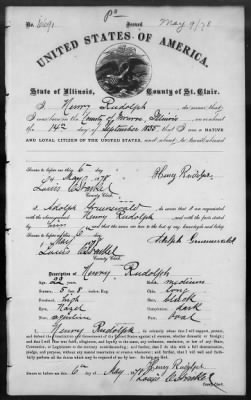 No. 6691 Issued May 9/78
UNITED STATES OF AMERICA.
State of Illinois, County of St. Clair.
I Henry Rudolph do swear that
I was born in the County of Monroe, Illinois on or about
the 14th day of September 1855; that I am a NATIVE
AND LOYAL CITIZEN OF THE UNITED STATES, and about to travel abroad
Sworn to before me this 6th
day of May 1878
Henry Rudolph
County Clerk
I Adolph Grunewald do swear that I am acquainted
with the above named Henry Rudolph, and with the facts stated
by him and that the same are true to the best of my knowledge and belief
Sworn to before me this 6
May
Adolph Grunewald
County Clerk
Description of Henry Rudolph
Age, 22 years
medium
5 ft 8
high
black
Hazel
dark
aquiline
oval
I, Henry Rudolph do solemnly swear that I will support, protect,
and defend the Constitution and Government of the United States against all enemies, whether domestic or foreign;
and that I will bear true faith, allegiance, and loyalty to the same, any ordinance, resolution, or law of any State,
Convention, or Legislature to the contrary notwithstanding; and further, that I do this with a full determination,
pledge, and purpose, without any mental reservation or evasion whatsoever; and further, that I will well and faithfully
perform all the duties which may be required of me by law. So help me God.
Henry Rudolph
Sworn to before me this 6th May 1878